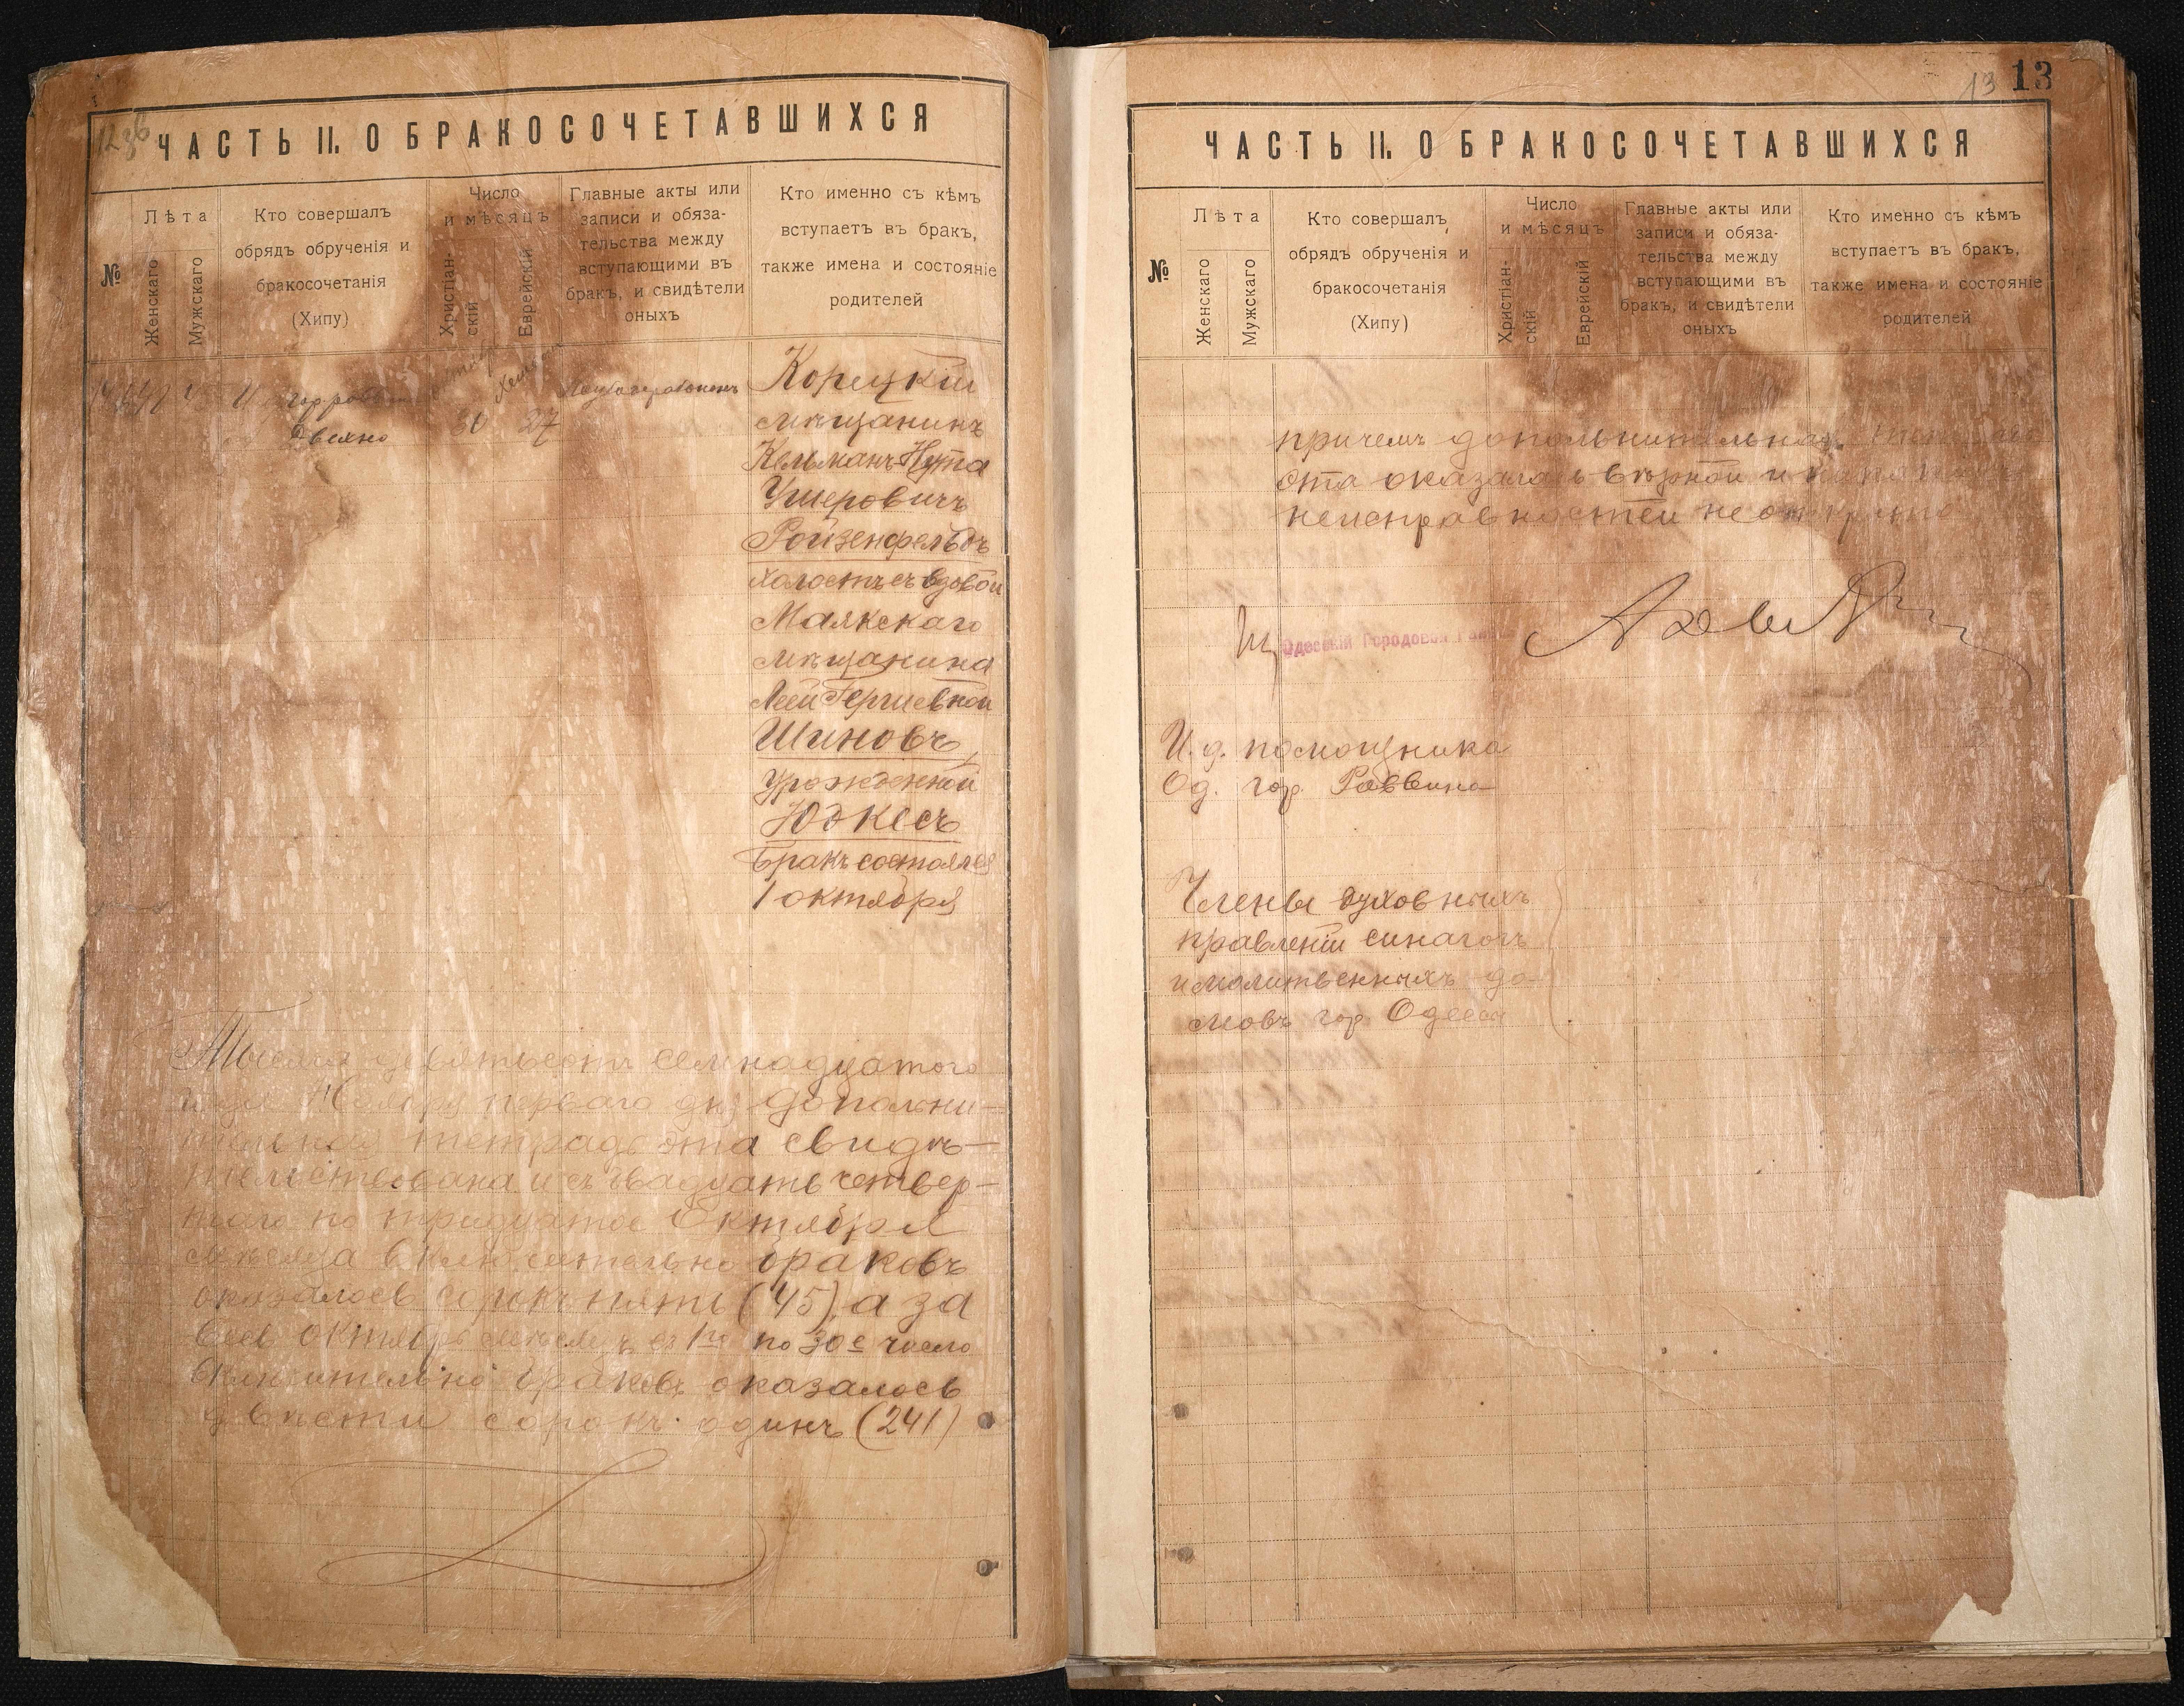 12 зв
ЧАСТЬ II. О БРАКОСОЧЕТАВШИХСЯ
№
Лѣта
Женскаго
Мужскаго
Кто совершалъ
обрядъ обрученія и
бракосочетанія
(Хипу)
Число
и мѣсяцъ
Христіан-
скій
Еврейскій
Главные акты или
записи и обяза-
тельства между
вступающими въ
бракъ, и свидѣтели
оныхъ
Кто именно съ кѣмъ
вступаетъ въ бракъ,
также имена и состояніе
родителей
30 27
Корецкій
мѣщанинъ
Кельманъ-Нута
Ушеровичъ
Ройзенфельдъ
холостъ съ вдовой
Маякскаго
мѣщанина
Леей Гершевной
Шиновъ,
урожденной
Юдкесъ
Бракъ состоялся
1 октября
Тысяча девятьсотъ семнадцатого
года Ноября перваго дня дополни-
тельная тетрадь эта свидѣ-
тельствована и съ двадцать четвер-
таго по тридцатое Октября
мѣсяца включительно браковъ
оказалось сорокъ пять (45), а за
весь октябрь мѣсяцъ съ 1го по 30е число
включительно браковъ оказалось
двѣсти сорокъ одинъ (241)
13 13
ЧАСТЬ II. О БРАКОСОЧЕТАВШИХСЯ
№
Лѣта
Женскаго
Мужскаго
Кто совершалъ
обрядъ обрученія и
бракосочетанія
(Хипу)
Число
и мѣсяцъ
Христіан-
скій
Еврейскій
Главные акты или
записи и обяза-
тельства между
вступающими въ
бракъ, и свидѣтели
оныхъ
Кто именно съ кѣмъ
вступаетъ въ бракъ,
также имена и состояніе
родителей
причемъ дополнительная
эта оказалась вѣрной и
неисправностей не открыто
Одесскій Городовой
И. д. помощника
Од. гор. Раввина
Члены духовныхъ
правленій синагогъ
и молитвенныхъ до-
мовъ гор. Одессы